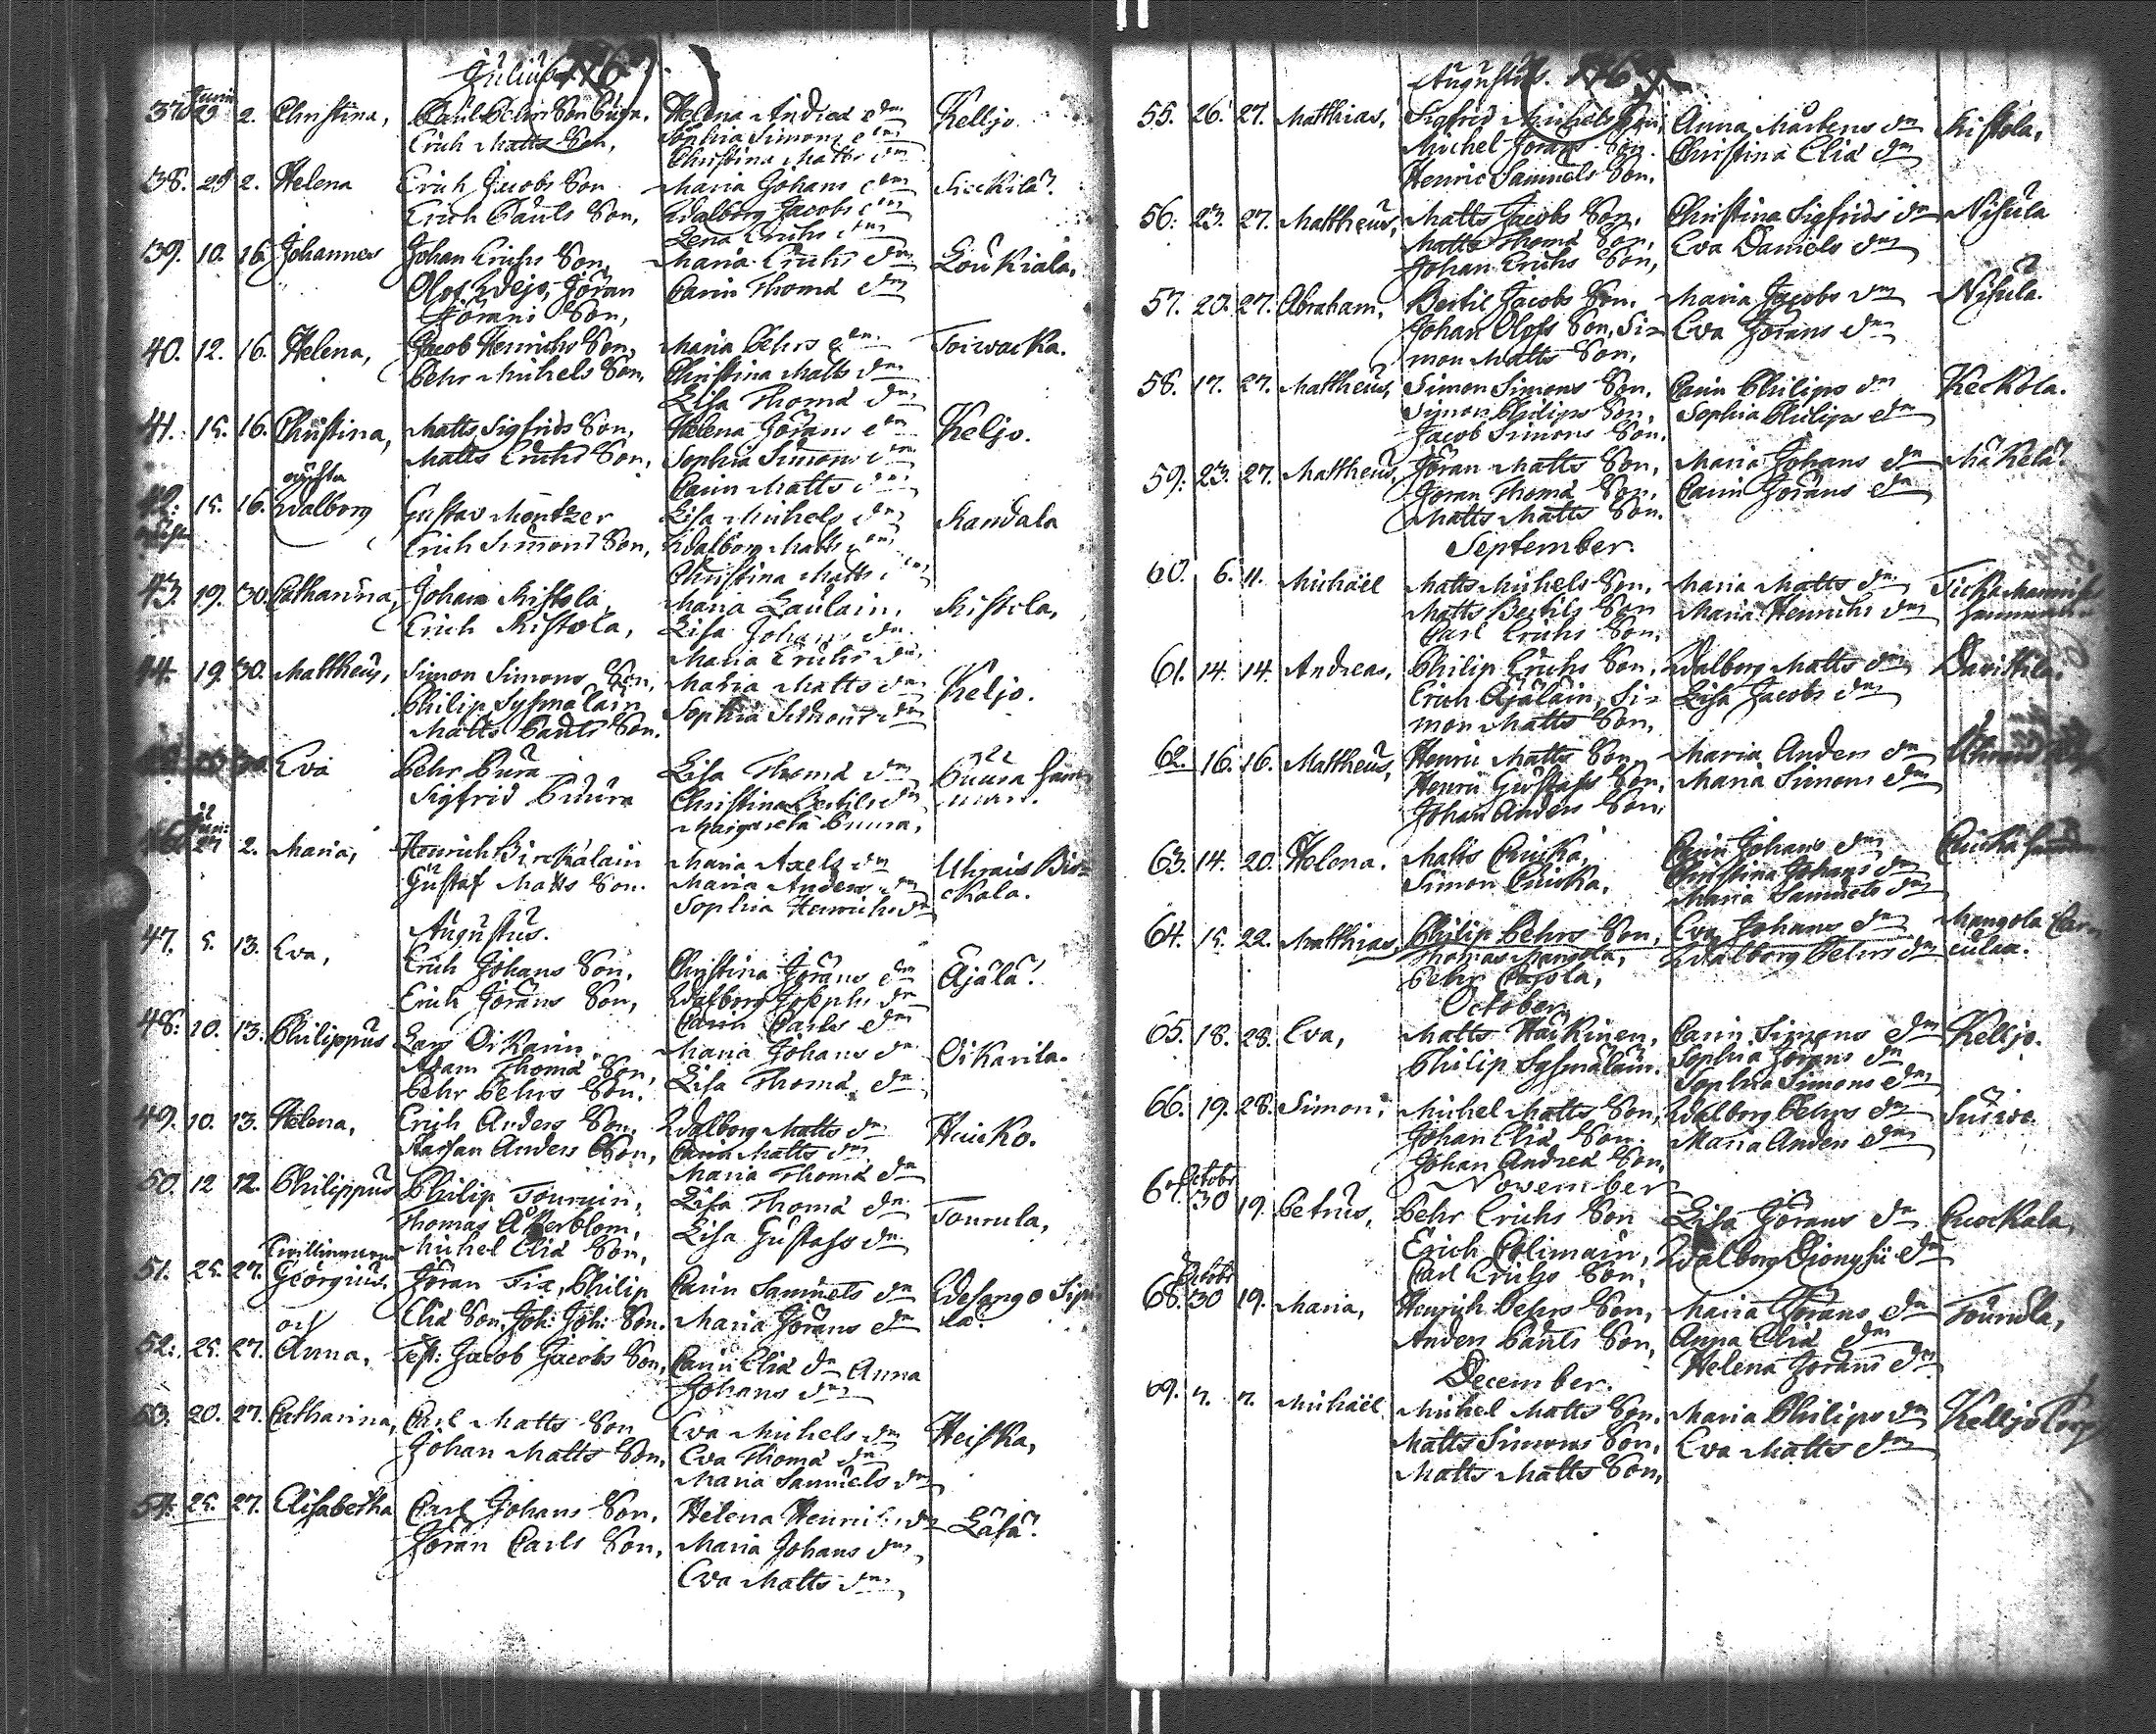 Julius 1767
37. Junii 29 2. Christina, Påhl Pehrs Son Erich Matts Son, Helena Andreæ dr Sophia Simons dr Christina Matts dr Kelljo.
38. 29 2. Helena Erich Jacobs Son Erich Påuls Son, Maria Johans dr Walborg Jacobs dr Lena Erichs dr Sickilä.
39. 10. 16. Johannes Johan Erichs Son, Olof Jöran Jörans Son, Maria Erichs dr Carin Thomæ dr Loukiala.
40. 12. 16. Helena, Jacob Henrichs Son, Pehr Michels Son, Maria Pehrs dr Christina Matts dr Lisa Thomæ dr Toiwacka.
41. 15. 16. Christina, Matts Sigfrids Son, Matts Erichs Son, Helena Jörans dr Sophia Simons dr Carin Matts dr Keljo.
42. 15. 16. oächta Walborg Gustav Mentzer Erich Simons Son, Lisa Michels dr Walborg Matts dr Christina Matts dr Randala
43. 19. 30. Catharina, Johan Ristola, Erich Ristola, Maria Laulain, Lisa Johans dr Maria Erichs dr Ristola,
44. 19. 30. Mattheus, Simon Simons Son, Philip Sysmäläin Matts Pauls Son. Maria Matts dr Sophia Simons dr Keljo.
Eva Pehr Pura Sigfrid Puura Lisa Thomæ dr Christina Bertils dr Margareta Puura, Puura
46. Junii 29 2. Maria, Henrich Birckalain Gustaf Matts Son. Maria Axels dr Maria Anders dr Sophia Henrichs dr Uhrais Bir=ckala.
Augustus.
47. 5. 13. Eva, Erich Johans Son, Erich Jörans Son, Christina Jörans dr Walborg Josephs dr Carin Carls dr Äjälä.
48. 10. 13. Philippus Lars Oikarin Adam Thomæ Son, Pehr Pehrs Son. Maria Johans dr Lisa Thomæ dr Oikarila.
49. 10. 13. Helena, Erich Anders Son, Staffan Anders Son, Walborg Matts dr Carin Matts dr Maria Thomæ dr Haicko.
50. 12 12. Philippus Philip Touruin, Thomas Åkerblom, Michel Eliæ Son, Lisa Thomæ dr Lisa Gustafs dr Tourula,
51. 25. 27. Tvillingarne Georgius. Jöran Tix, Philip Eliæ Son, Joh: Joh: Son. Carin Samuels dr Maria Jörans dr Wesango
och
52. 25. 27. Anna, Test: Jacob Jacobs Son, Carin Eliæ dr Anna Johans dr
53. 20. 27. Catharina, Carl Matts Son Johan Matts Son, Eva Michels dr Eva Thomæ dr Maria Samuels dr Heiska,
54. 25. 27. Elisabetha Carl Johans Son, Jöran Carls Son, Helena Henrichs dr Maria Johans dr Eva Matts dr Läsä.
Augustus. 1767
55. 26. 27. Matthias, Sigfrid Michels Son, Michel Jörans Son. Henric Samuels Son. Anna Mårtens dr Christina Eliæ dr Ristola,
56. 23. 27. Mattheus, Matts Jacobs Son, Matts Thomæ Son, Johan Erichs Son, Christina Sigfrids dr Eva Daniels dr Nisula
57. 20. 27. Abraham, Bertil Jacobs Son, Johan Olofs Son, Si=mon Matts Son, Maria Jacobs dr Eva Jörans dr Nisula.
58. 17. 27. Mattheus, Simon Simons Son, Simon Philips Son, Jacob Simons Son. Carin Philips dr Sophia Philips dr Keckola.
59. 23. 27. Mattheus, Jöran Matts Son, Jöran Thomæ Son, Matts Matts Son. Maria Johans dr Carin Jörans dr Mäkelä.
September.
60. 6. 11. Michaël Matts Michels Son, Matts Bertils Son Carl Erichs Son. Maria Matts dr Maria Henrichs dr
61. 14. 14. Andreas, Philip Erichs Son, Erich Äjäläin, Si=mon Matts Son, Walborg Matts dr Lisa Jacobs dr Davittila.
62. 16. 16. Mattheus, Henric Matts Son, Henric Gustafs Son, Johan Anders Son, Maria Anders dr Maria Simons dr
63. 14. 20. Helena. Matts Puicka, Simon Puicka, Carin Johans dr Christina Johans dr Maria Samuels dr
64. 15. 22. Matthias, Philip Pehrs Son, Thomas Mangola, Pehr Parola, Eva Johans dr Walborg Pehrs dr Mangola
October
65. 18. 28. Eva, Matts Häckinen, Philip Sysmäläin. Carin Simons dr Sophia Jörans dr Sophia Simons dr Kelljo.
66. 19. 28. Simon. Michel Matts Son, Johan Eliæ Son. Johan Andreæ Son, Walborg Pehrs dr Maria Anders dr
November
67. Octobr 30 19. Petrus, Pehr Erichs Son Erich Carl Erichs Son, Lisa Jörans dr Walborg Dionysii dr Cuockala,
68. Octobr 30 19. Maria, Henrich Pehrs Son, Anders Pauls Son, Maria Jörans dr Anna Eliæ dr Helena Jörans dr Tourula,
December.
69. 7. 7. Michaël Michel Matts Son, Matts Simons Son, Matts Matts Son, Maria Philips dr Eva Matts dr Kelljo Torp